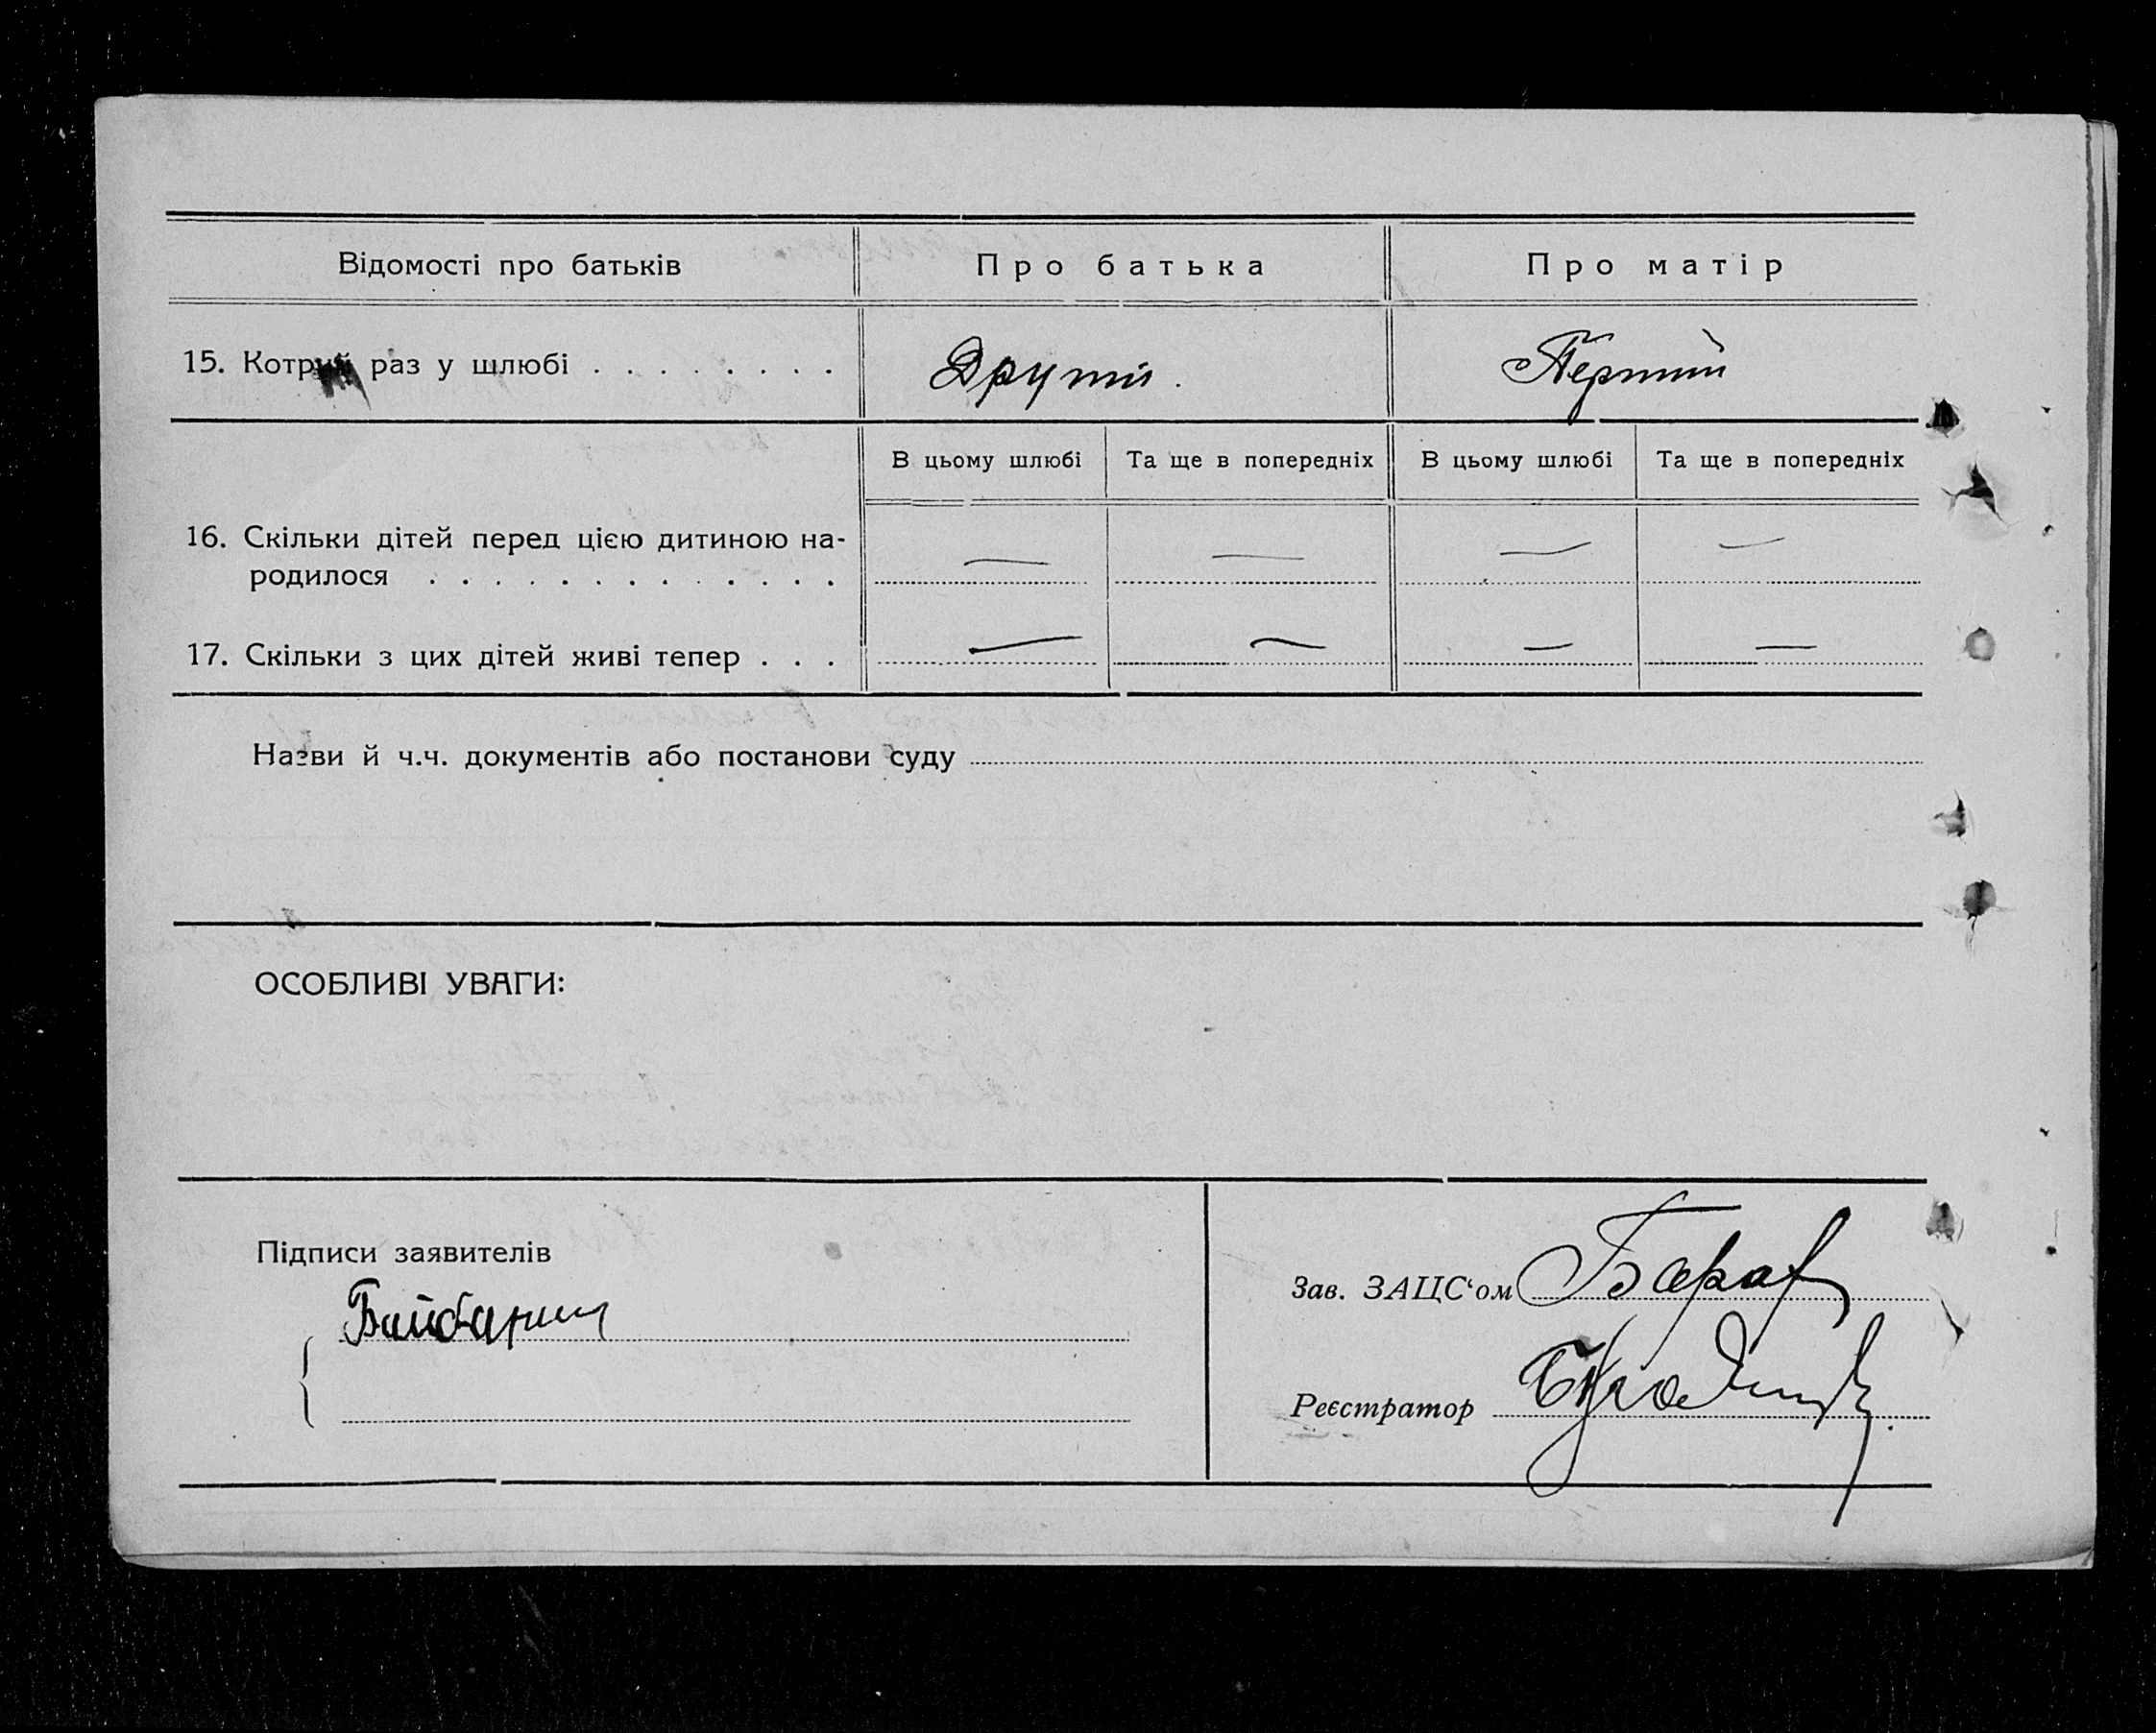 Відомості про батьків
Про батька
Про матір
15. Котрий раз у шлюбі . . . . . . . .
Другий.
Перший
В цьому шлюбі
Та ще в попередніх
В цьому шлюбі
Та ще в попередніх
16. Скільки дітей перед цією дитиною на-
родилося . . . . . . . . . . . . .
— — — —
17. Скільки з цих дітей живі тепер . . .
— — — —
Назви й ч.ч. документів або постанови суду
ОСОБЛИВІ УВАГИ:
Підписи заявителів
Зав. ЗАЦС‘ом
Реєстратор